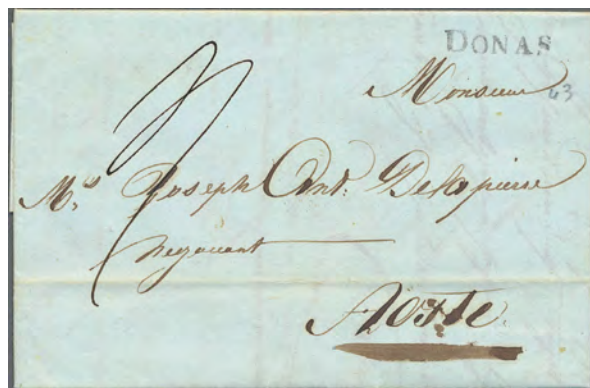 DONAS
Monsieur
43
Mr. Joseph Ant. Delapierre
Negociant
Aoste